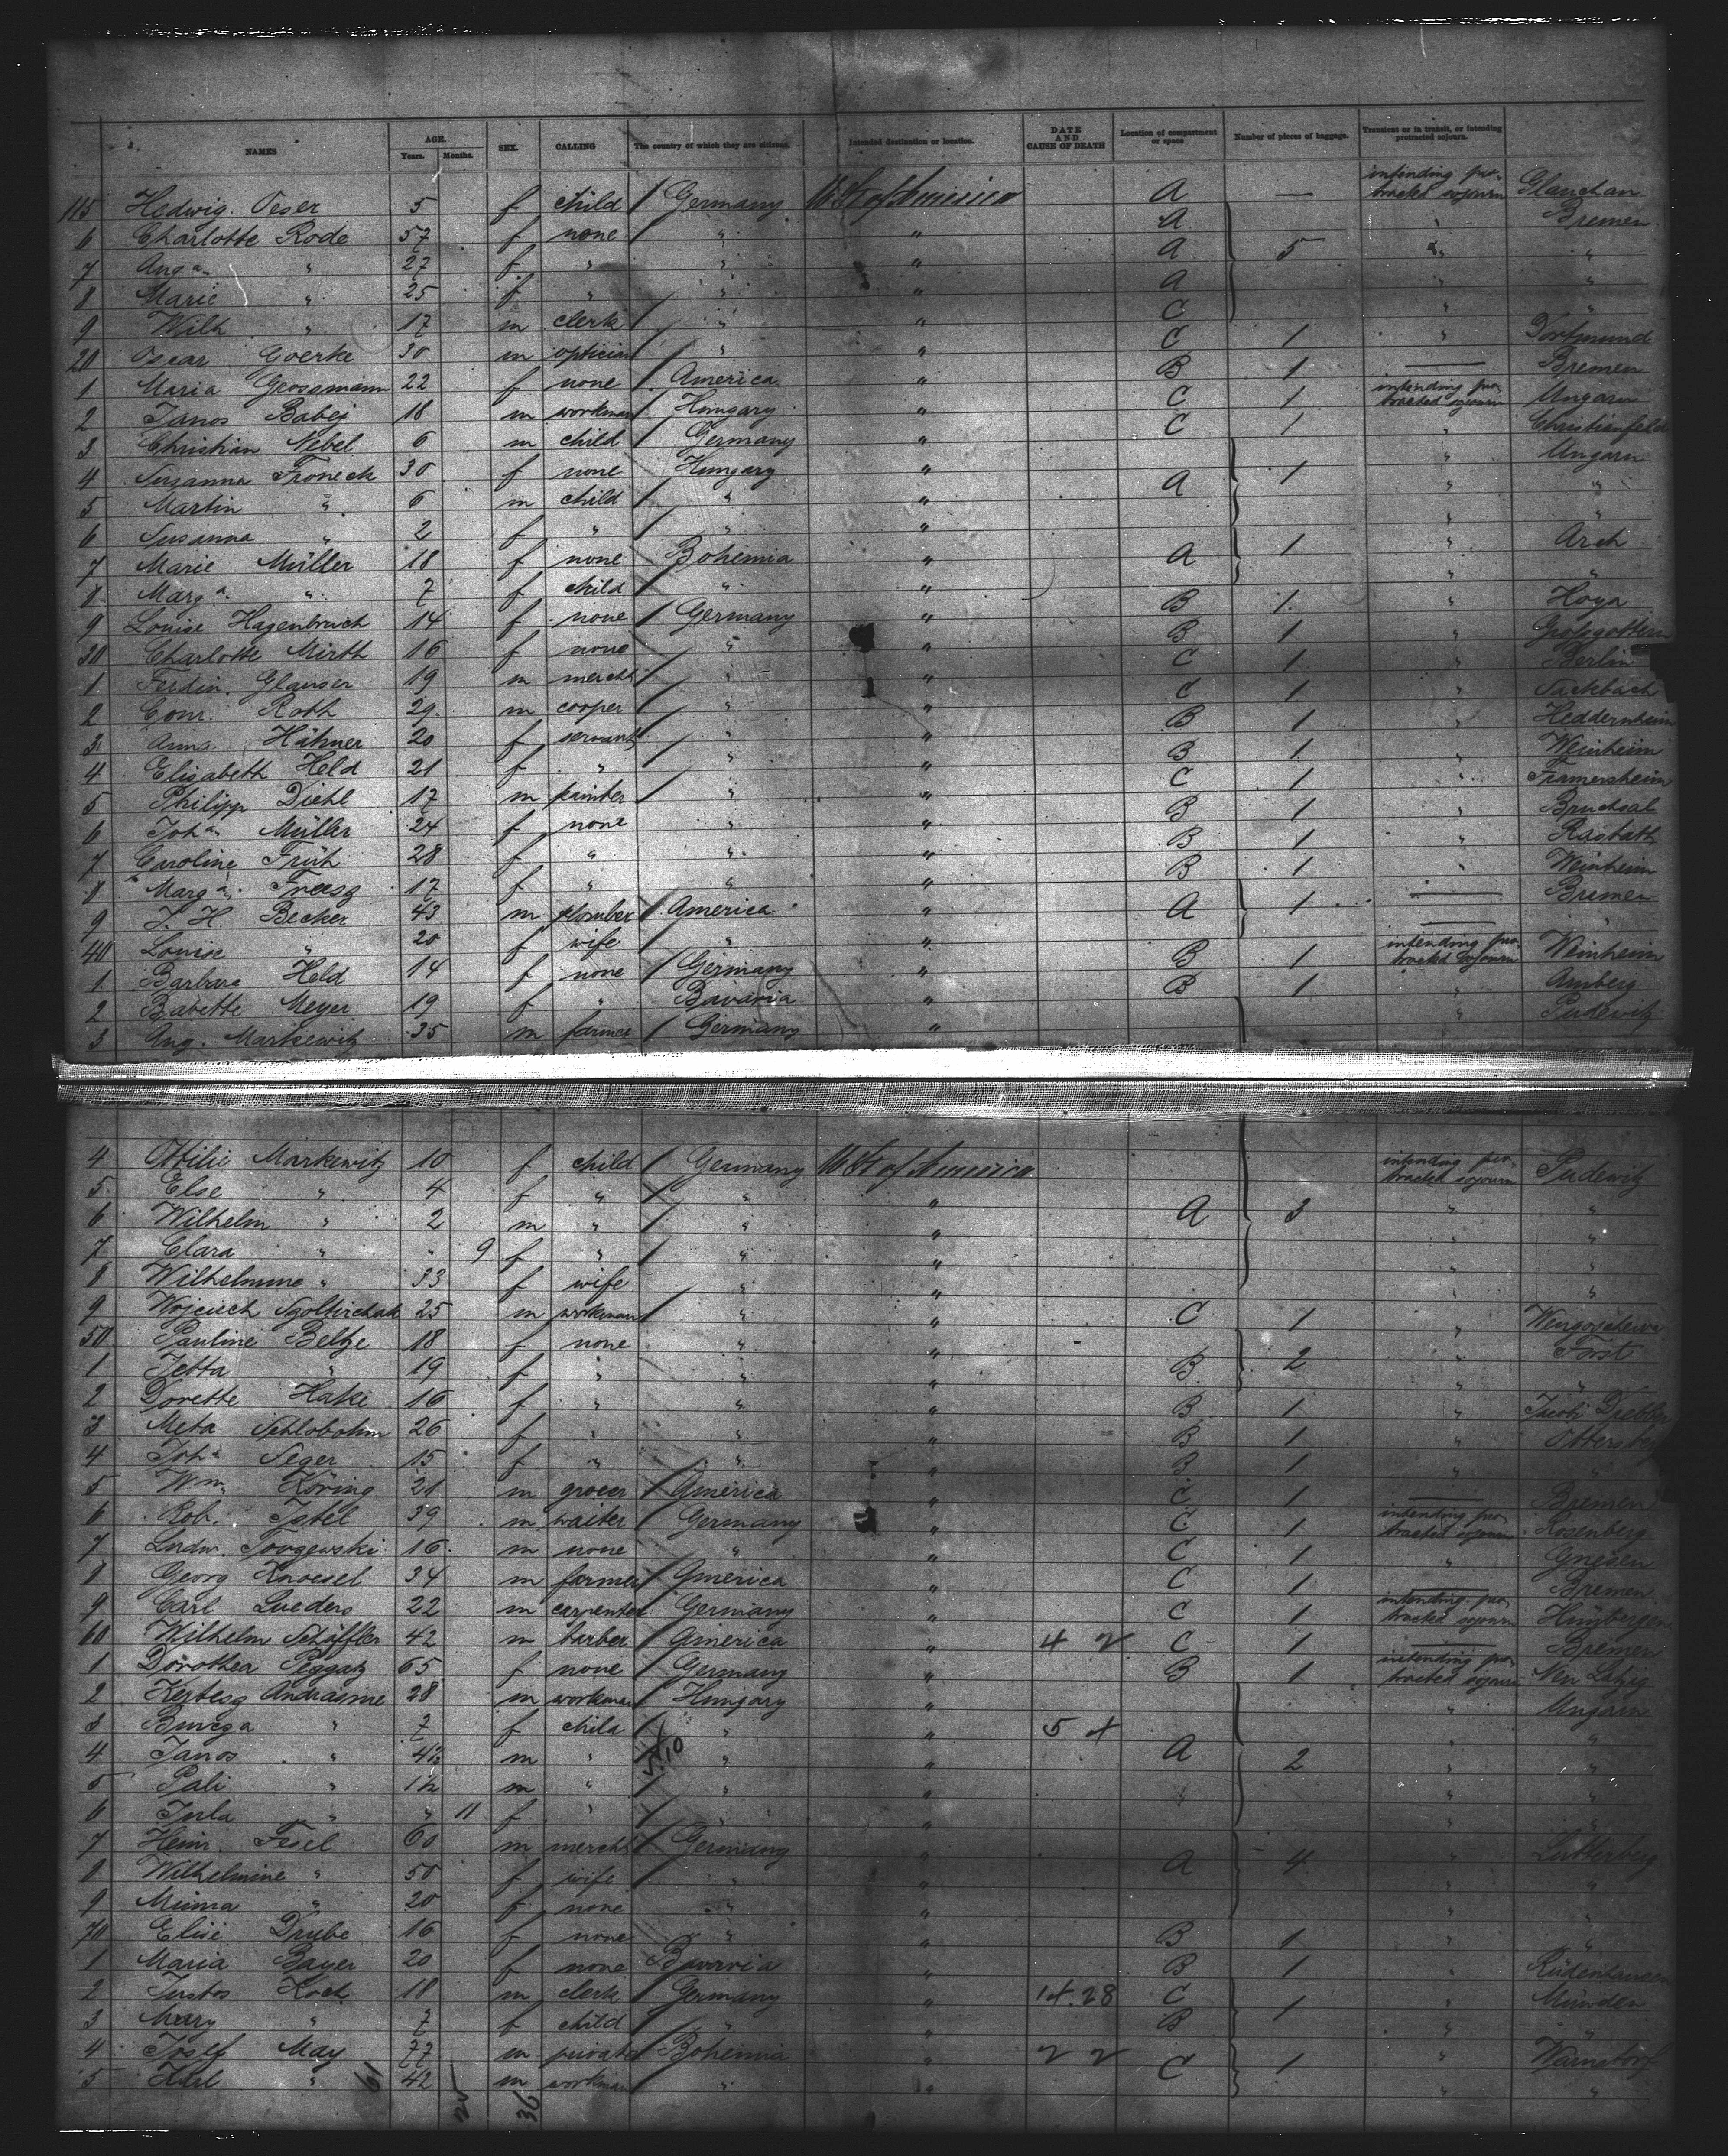 NAMES AGE. Years. Months. SEX. CALLING The country of which they are citizens. Intended destination or location. DATE AND CAUSE OF DEATH Location of compartment or space Number of pieces of baggage. Transient or in transit, or intending protracted sojourn.
115 Hedwig Oeser 5 f child Germany U St of America A — intending protracted sojourn Glauchau
6 Charlotte Rode 57 f none " " A Bremen
7 Aug a. " 27 f " " " A 5 " "
8 Marie " 25 f " " " A " "
9 Wilh " 17 m clerk " " C " "
20 Oscar Goerke 30 m optician " " C 1 " Dortmund
1 Maria Grossmann 22 f none America " B 1 — Bremen
2 Janos Babej 18 m workman Hungary " C 1 intending protracted sojourn Ungarn
3 Christian Nebel 6 m child Germany " C 1 " Christianfeld
4 Susanna Froneck 30 f none Hungary " 1 " Ungarn
5 Martin " 6 m child " " A " "
6 Susanna " 2 f " " " " "
7 Marie Müller 18 f none Bohemia " A 1 " Arch
8 Marg a. " 7 f child " " " "
9 Louise Hagenbruch 14 f none Germany " B 1 " Hoya
30 Charlotte Mirth 16 f none " " B 1 " Grossgottern
1 Ferdin. Glauser 19 m mercht " " C 1 " Berlin
2 Conr. Roth 29 m cooper " " C 1 " Sackbach
3 Anna Hähner 20 f servant " " B 1 " Heddernheim
4 Elisabeth Held 21 f " " " B 1 " Weinheim
5 Philipp Diehl 17 m painter " " C 1 " Framersheim
6 Joh a. Müller 24 f none " " B 1 " Bruchsal
7 Caroline Früh 28 f " " " B 1 " Rastatt
8 Marg a. 17 f " " " B 1 " Weinheim
9 J. H. Becker 43 m plomber America " A 1 — Bremen
40 Louise " 20 f wife " " — "
1 Barbara Held 14 f none Germany " B 1 intending protracted sojourn Weinheim
2 Babette Meyer 19 f " Bavaria " B 1 " Amberg
3 Aug. Markewitz 35 m farmer Germany " " Pudewitz
4 Ottilie Markewitz 10 f child Germany U St of America intending protracted sojourn Pudewitz
5 Else " 4 f " " " " "
6 Wilhelm " 2 m " " " A 3 " "
7 Clara " " 9 f " " " " "
8 Wilhelmine " 33 f wife " " " "
9 Wojciech 25 m workman " " C 1 "
50 Pauline Beltze 18 f none " " " Forst
1 Jetta " 19 f " " " B 2 " "
2 Dorette Hake 16 f " " " B 1 " Jacobi Drebber
3 Meta Schlobohm 26 f " " " B 1 " Ottersberg
4 Joh a. Seger 15 f " " " B 1 " "
5 Wm. Köring 21 m grocer America " C 1 — Bremen
6 Rob. Igtel 39 m waiter Germany " C 1 intending protracted sojourn Rosenberg
7 Ludw. 16 m none " " C 1 " Gnesen
8 Georg Knoesel 34 m farmer America " C 1 — Bremen
9 Carl Lueders 22 m carpenter Germany " C 1 intending protracted sojourn
60 Wilhelm Schöffler 42 m barber America " 4 2 C 1 — Bremen
1 Dorothea Peggatz 65 f none Germany " B 1 intending protracted sojourn Neu Latzig
2 Kertesz Andrasine 28 m workman Hungary " " Ungarn
3 " 7 f child " " 5 4 " "
4 Janos " 4½ m " " " A 2 " "
5 Pali " 1½ m " " " " "
6 Jula " " 11 f " " " " "
7 Heinr. Fesel 60 m mercht Germany " " Lutterberg
8 Wilhelmine " 50 f wife " " A 4 " "
9 Minna " 20 f none " " " "
70 Elise Drube 16 f none " " B 1 " "
1 Maria Bayer 20 f none Bavaria " B 1 " Rüdenhausen
2 Justos Koch 18 m clerk Germany " 14.28 C 1 " Münden
3 Mary " 7 f child " " B " "
4 Josef May 77 m private Bohemia " 2 2 C 1 " Warnsdorf
5 Karl " 42 m workman " " " "
61 25 36